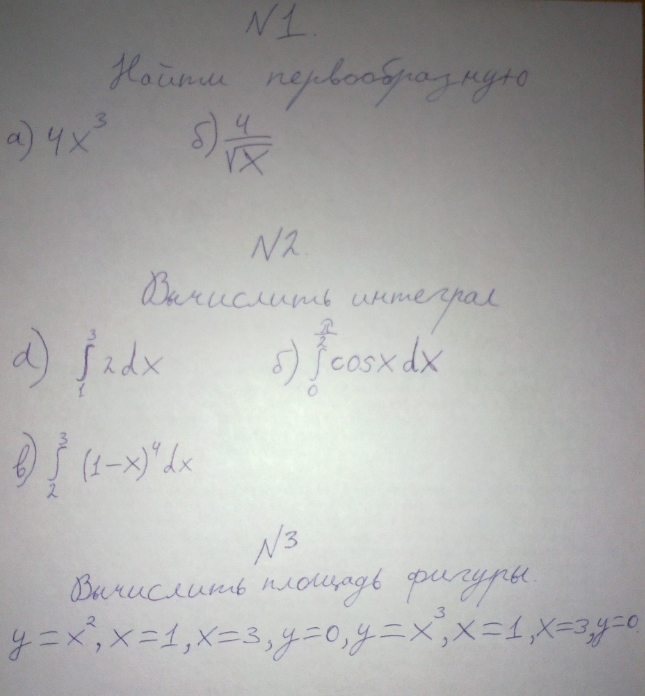 N1.
Найти первообразную
а) 4x³ б) 4/√x
N2.
Вычислить интеграл
а) ∫₁³ 2dx б) ∫₀^(π/2) cosx dx
в) ∫₂³ (1-x)⁴dx
N3
Вычислить площадь фигуры.
y=x², x=1, x=3, y=0, y=x³, x=1, x=3, y=0.